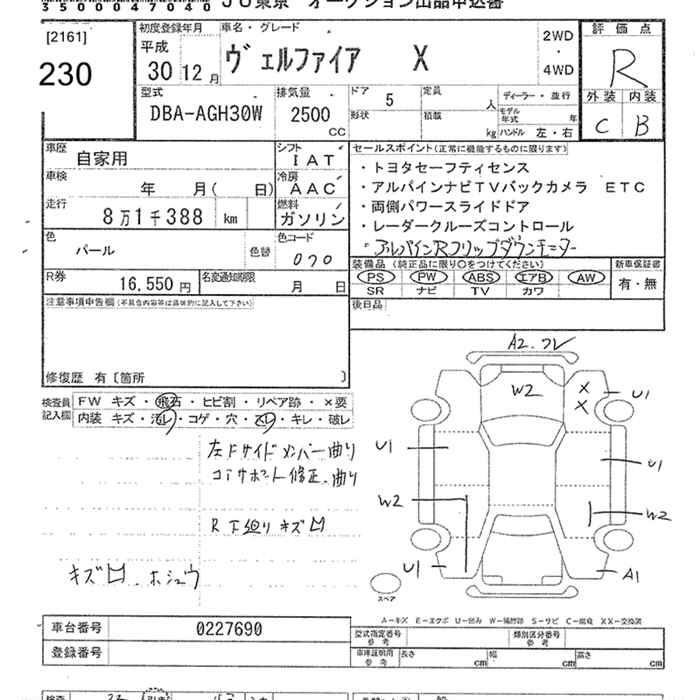 35000047040 JU東京 オークション出品申込書
[2161]
230
初度登録年月 平成 30年 12月
車名・グレード ヴェルファイア X
2WD ・ 4WD
評価点 R
外装 C 内装 B
型式 DBA-AGH30W
排気量 2500 CC
ドア 5 形状
定員 人 積載 kg
ディーラー・並行
モデル年式 年
ハンドル 左・右
車歴 自家用
シフト IAT
車検 年 月( 日)
冷房 AAC
走行 8万1千388 km
燃料 ガソリン
色 パール 色替
色コード 070
R券 16,550円
名変通知期限 月 日
セールスポイント(正常に機能するものに限ります)
・トヨタセーフティセンス
・アルパインナビTVバックカメラ ETC
・両側パワースライドドア
・レーダークルーズコントロール
・アルパインRフリップダウンモニター
装備品(純正品に限り○をつけてください)
PS PW ABS エアB AW
SR ナビ TV カワ
新車保証書 有・無
後日品
注意事項申告欄(不具合内容等は具体的に記入して下さい)
修復歴 有〔箇所 〕
検査員記入欄
FW キズ・飛石・ヒビ割・リペア跡・×要
内装 キズ・汚レ・コゲ・穴・スレ・キレ・破レ
左Fサイドメンバー曲り
コアサポート修正、曲り
R下廻りキズ凹
キズ凹、ホシュウ
A2.フレ
W2
X
X
U1
U1
U1
W2
W2
U1
A1
スペア
A-キズ E-エクボ U-凹み W-補修跡 S-サビ C-腐蝕 XX-交換済
車台番号 0227690
登録番号
型式指定番号 参考
類別区分番号 参考
車庫証明用 参考 長さ cm 幅 cm 高さ cm